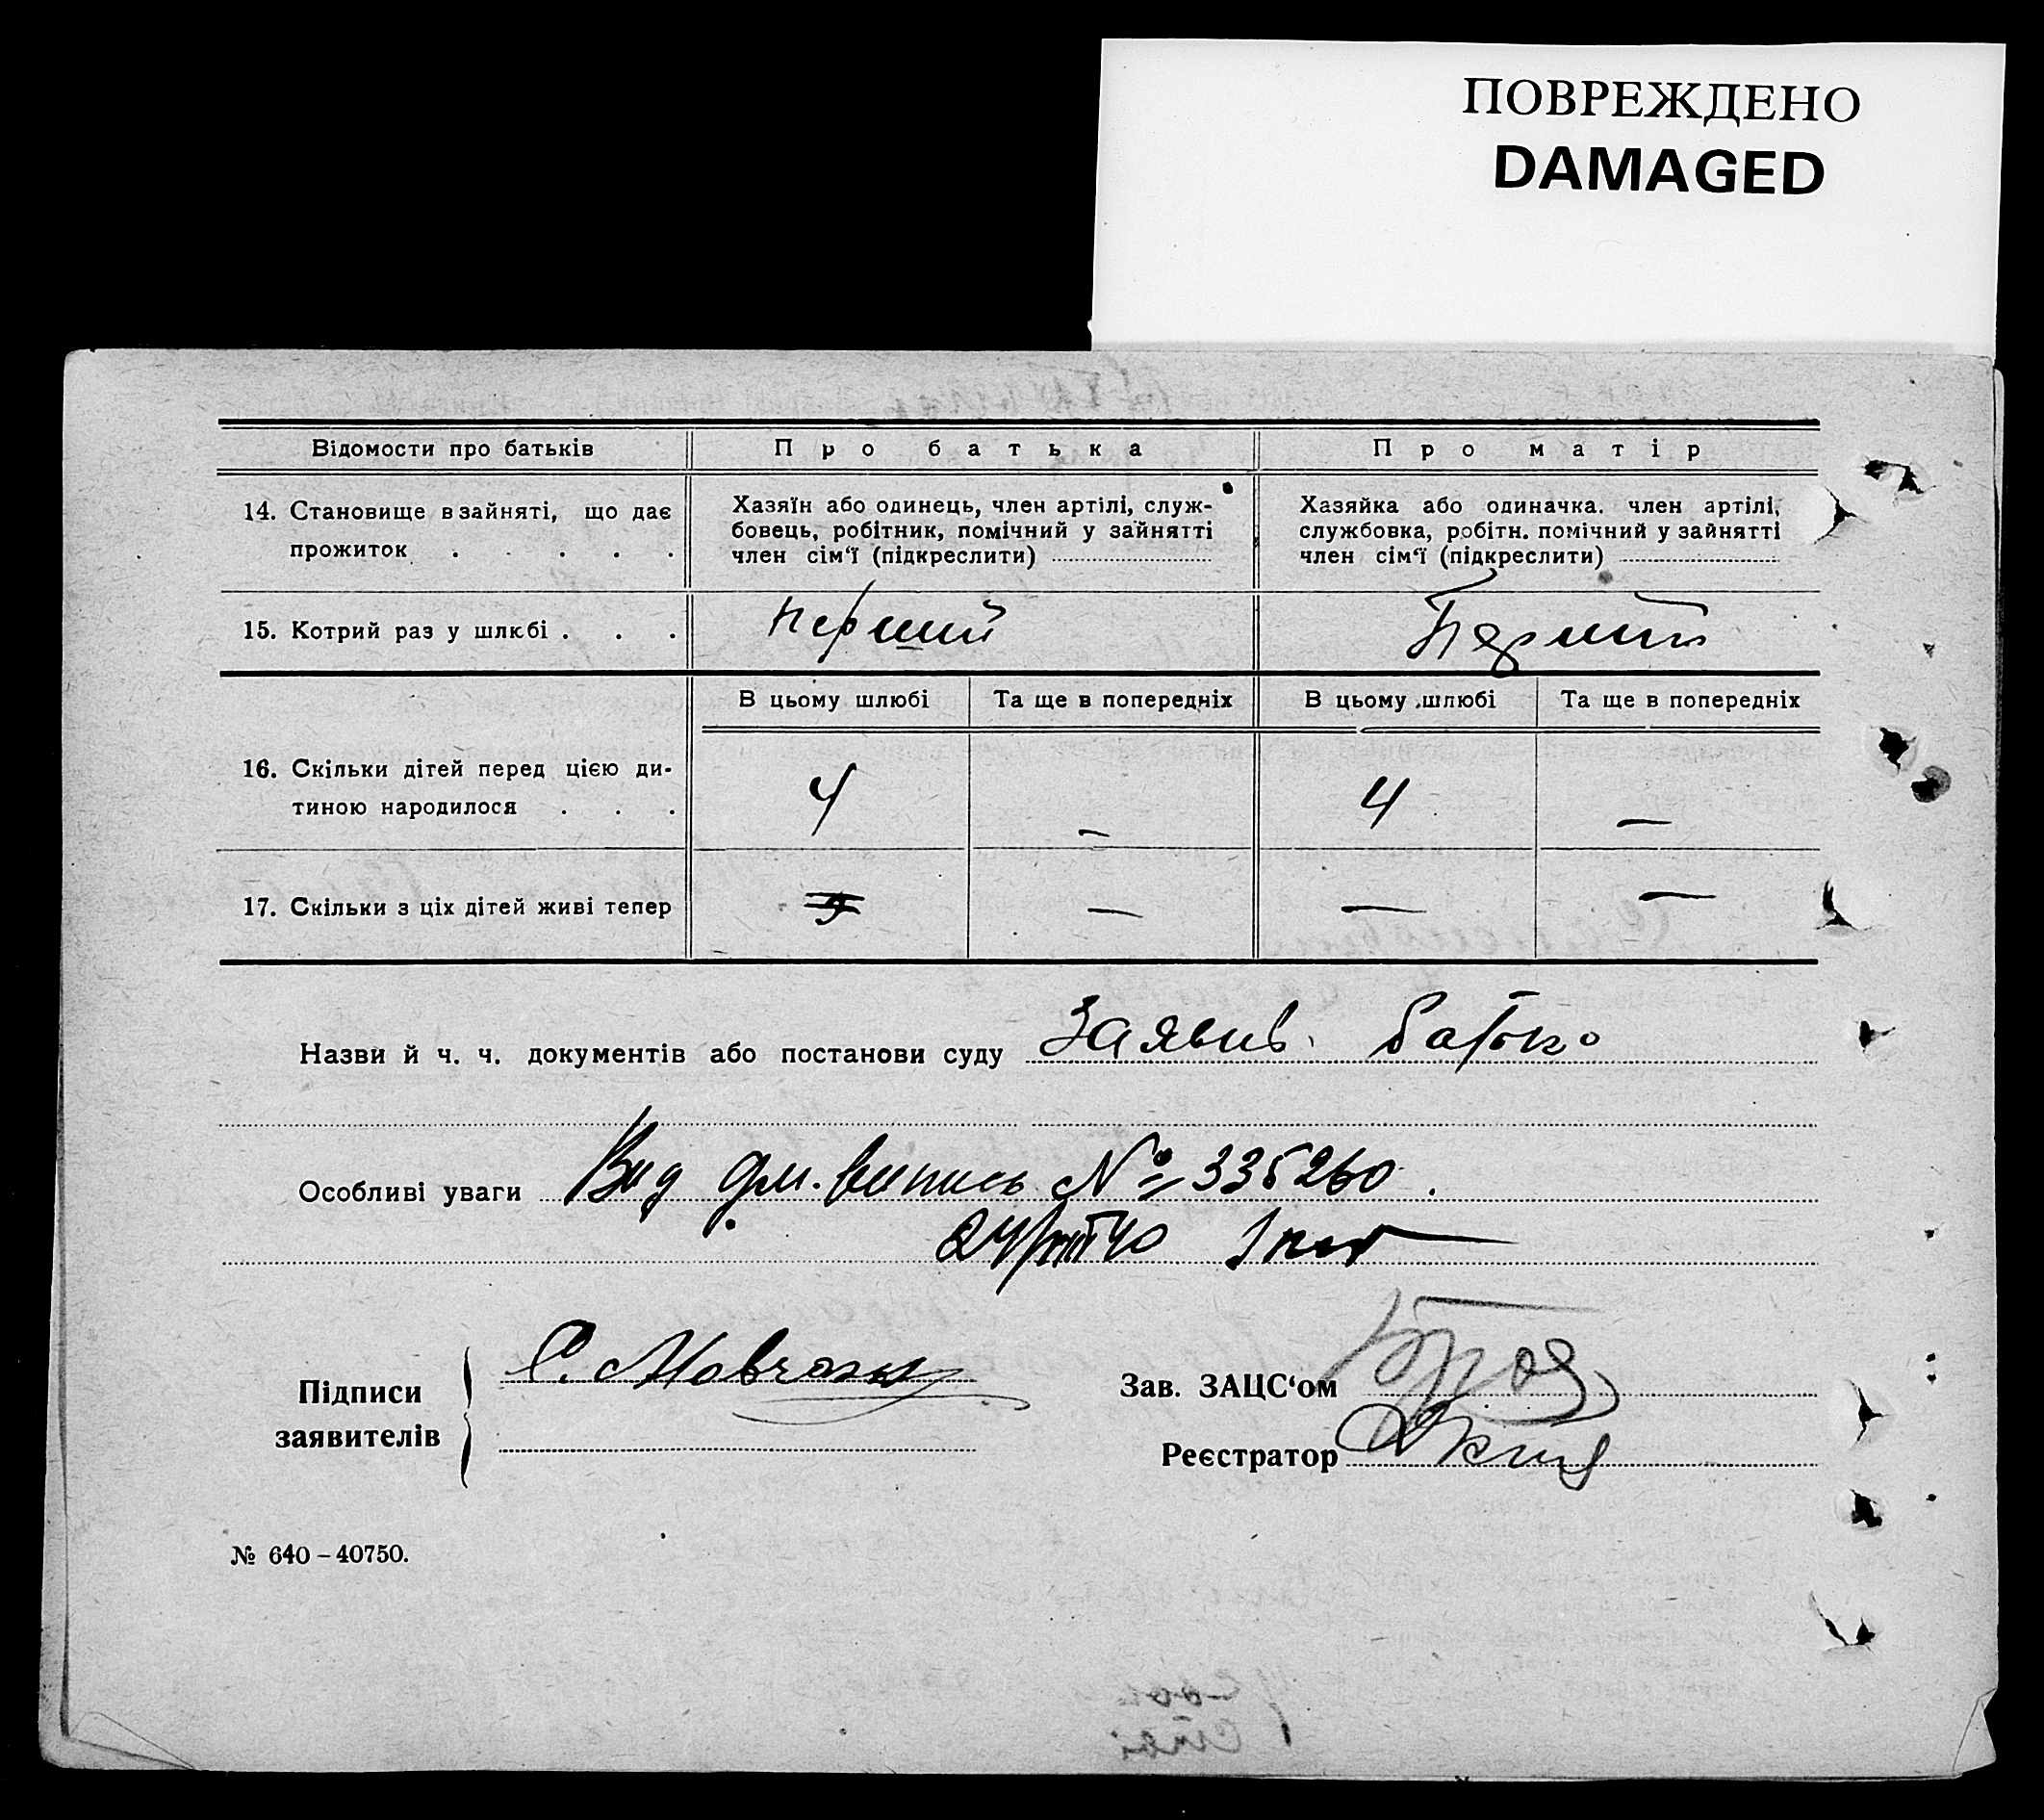 ПОВРЕЖДЕНО
DAMAGED
Відомости про батьків
Про батька
Про матір
14. Становище в зайняті, що дає
прожиток . . . . .
Хазяїн або одинець, член артілі, служ-
бовець, робітник, помічний у зайнятті
член сім‘ї (підкреслити)
Хазяйка або одиначка. член артілі,
службовка, робітн. помічний у зайнятті
член сім‘ї (підкреслити)
15. Котрий раз у шлюбі . . .
перший
Перший
В цьому шлюбі
Та ще в попередніх
В цьому шлюбі
Та ще в попередніх
16. Скільки дітей перед цією ди-
тиною народилося . . .
4
—
4
—
17. Скільки з ціх дітей живі тепер
—
—
—
Назви й ч. ч. документів або постанови суду Заявив батько
Особливі уваги Вид випись № 335260.
24/VIII 40
Підписи
заявителів
С. Мовчан
Зав. ЗАЦС‘ом
Реєстратор
№ 640 – 40750.